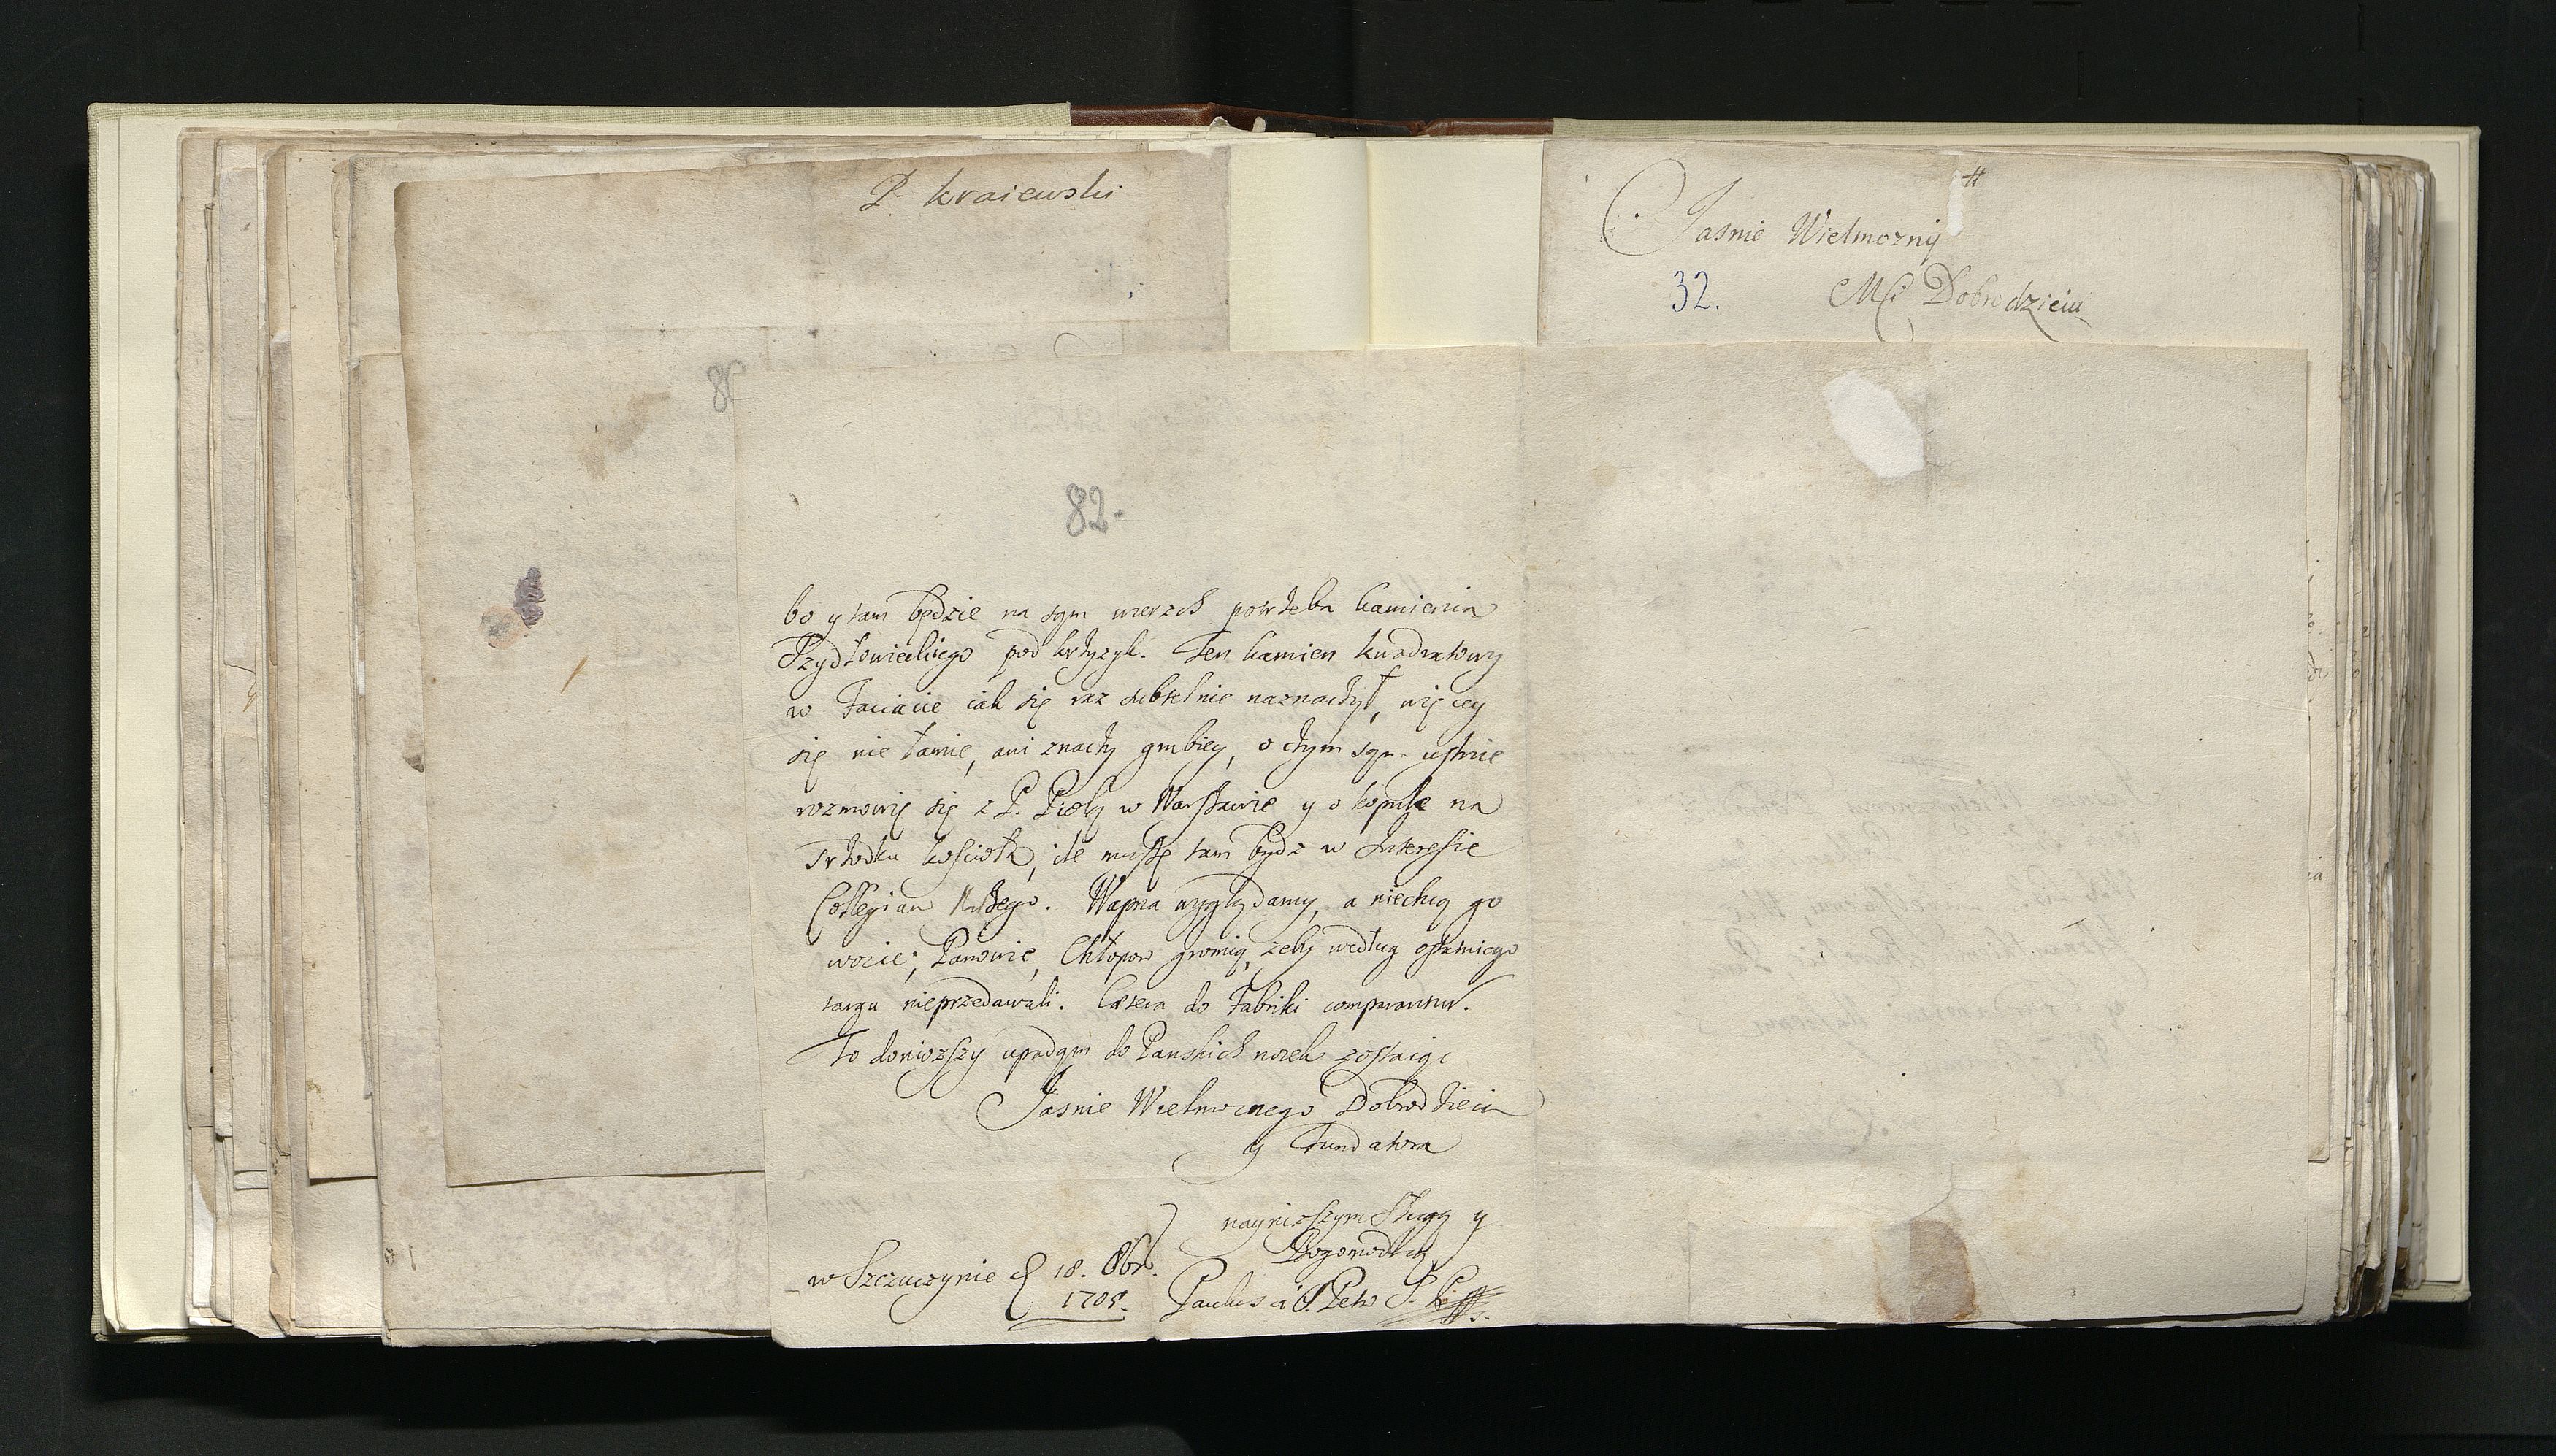 P. Kraiewski
Jasnie Wielmozny
32.
Mći Dobrodzieiu
82.
bo y tam będzie na sym wierzch potrzeba kamienia
Szydłowieckiego pod krzyzyk. Ten kamien kwadratowy
w Faciacie iak się raz subtelnie naznaczył, więcey
się nie łamie, ani znaczy grubiey, o czym sam ustnie
rozmowię się z P. Piolą w Warszawie y o kopule na
srzodku koscioła, ile muszę tam bydz w Interesie
Collegium Naszego. Wapna wyglądamy, a niechcą go
wozic, Panowie, Chłopow gromią, zeby według ostatniego
targu nieprzedawali. Cætera do Fabriki comparantur.
To doniozszy upadam do Panskich nozek zostaiąc
Jasnie Wielmoznego Dobrodzieia
y Fundatora
naynizszym Sługą y
Bogomodlcą
w Szczuczynie d. 18. 8br.
1705.
Paulus a S. Petro S. P.